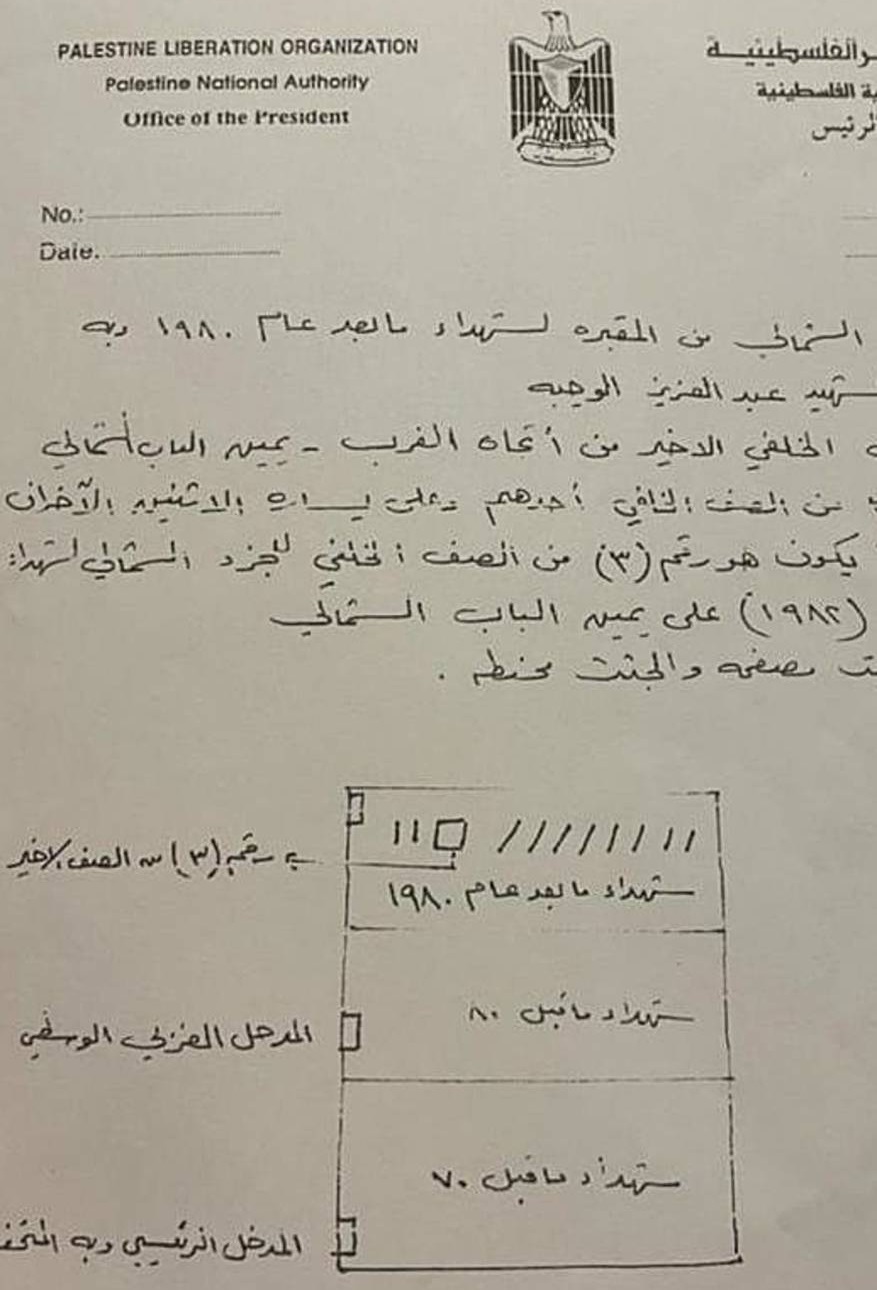 PALESTINE LIBERATION ORGANIZATION
Palestine National Authority
Office of the President
الفلسطينيــة
الفلسطينية
الرئيس
No.:
Date.
الشمالي من المقبره لشهداء مابعد عام ١٩٨٠ وبه
شهيد عبد العزيز الوجيه
الخلفي الاخير من أتجاه الغرب - يمين الباب الشمالي
من الصف الخلفي أحدهم وعلى يساره الاثنين الآخران
يكون هو رقم (٣) من الصف الخلفي للجزء الشمالي لشهداء
(١٩٨٢) على يمين الباب الشمالي
مصفحه والجثث محنطه .
رقم (٣) من الصف الاخير
شهداء مابعد عام ١٩٨٠
شهداء ماقبل ٨٠
المدخل الغربي الوسطي
شهداء ماقبل ٧٠
المدخل الرئيسي وبه